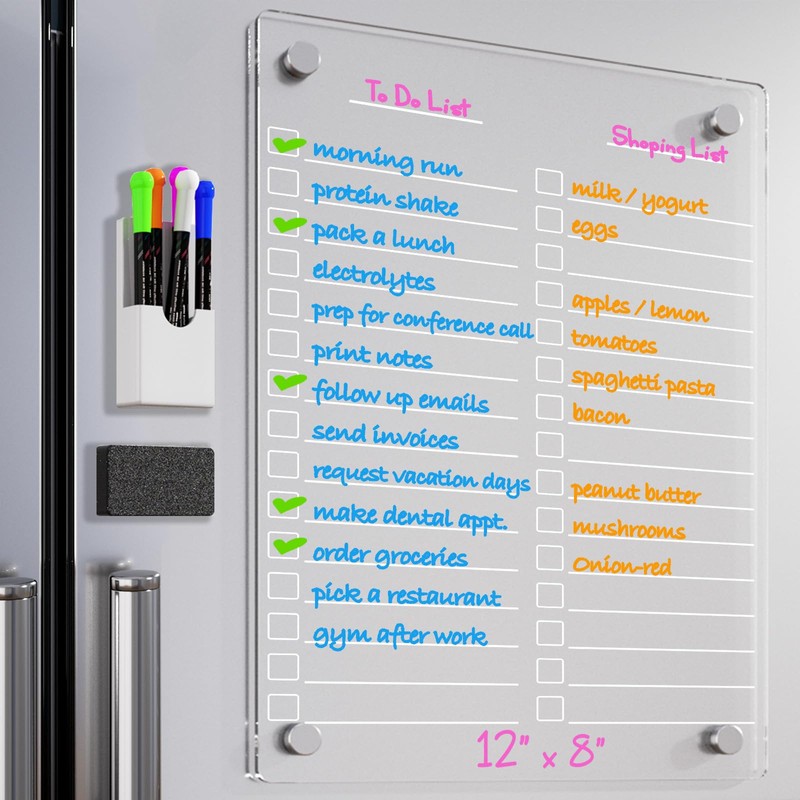 To Do List
morning run
protein shake
pack a lunch
electrolytes
prep for conference call
print notes
follow up emails
send invoices
request vacation days
make dental appt.
order groceries
pick a restaurant
gym after work
Shoping List
milk / yogurt
eggs
apples / lemon
tomatoes
spaghetti pasta
bacon
peanut butter
mushrooms
Onion-red
12" x 8"